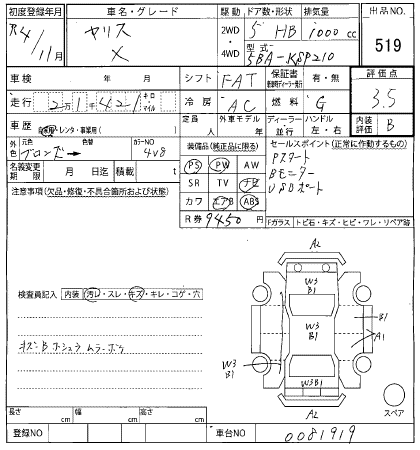 初度登録年月 車名・グレード 駆動 ドア数・形状 排気量 出品NO.
R4/11月 ヤリス 2WD 5 HB 1000 cc 519
X 4WD 型式 5BA-KSP210
車検 年 月 シフト FAT 保証書 有・無 評価点
走行 2万1千421 キロ マイル 冷房 AC 燃料 G 3.5
車歴 自家用・レンタ・事業用( ) 定員 人 外車モデル 年 ディーラー 並行 ハンドル 左・右 内装評価 B
外色 元色 ブロンズ→ 色替 カラーNO 4V8 装備品(純正品に限る) セールスポイント(正常に作動するもの)
名義変更期限 月 日迄 積載 t PS PW AW Pスタート
注意事項(欠品・修復・不具合箇所および状態) SR TV ナビ Bモニター
カワ エアB ABS USBポート
R券 9450 円 Fガラス トビ石・キズ・ヒビ・ワレ・リペア跡
A2
W3
B1
検査員記入 内装 汚し・スレ・キズ・キレ・コゲ・穴
W3
B1
B1
A1
キズB ホシュウ ムラ・ボケ
W3
B1
W3B1
A2
スペア
長さ cm 幅 cm 高さ cm
登録NO 車台NO 0081919